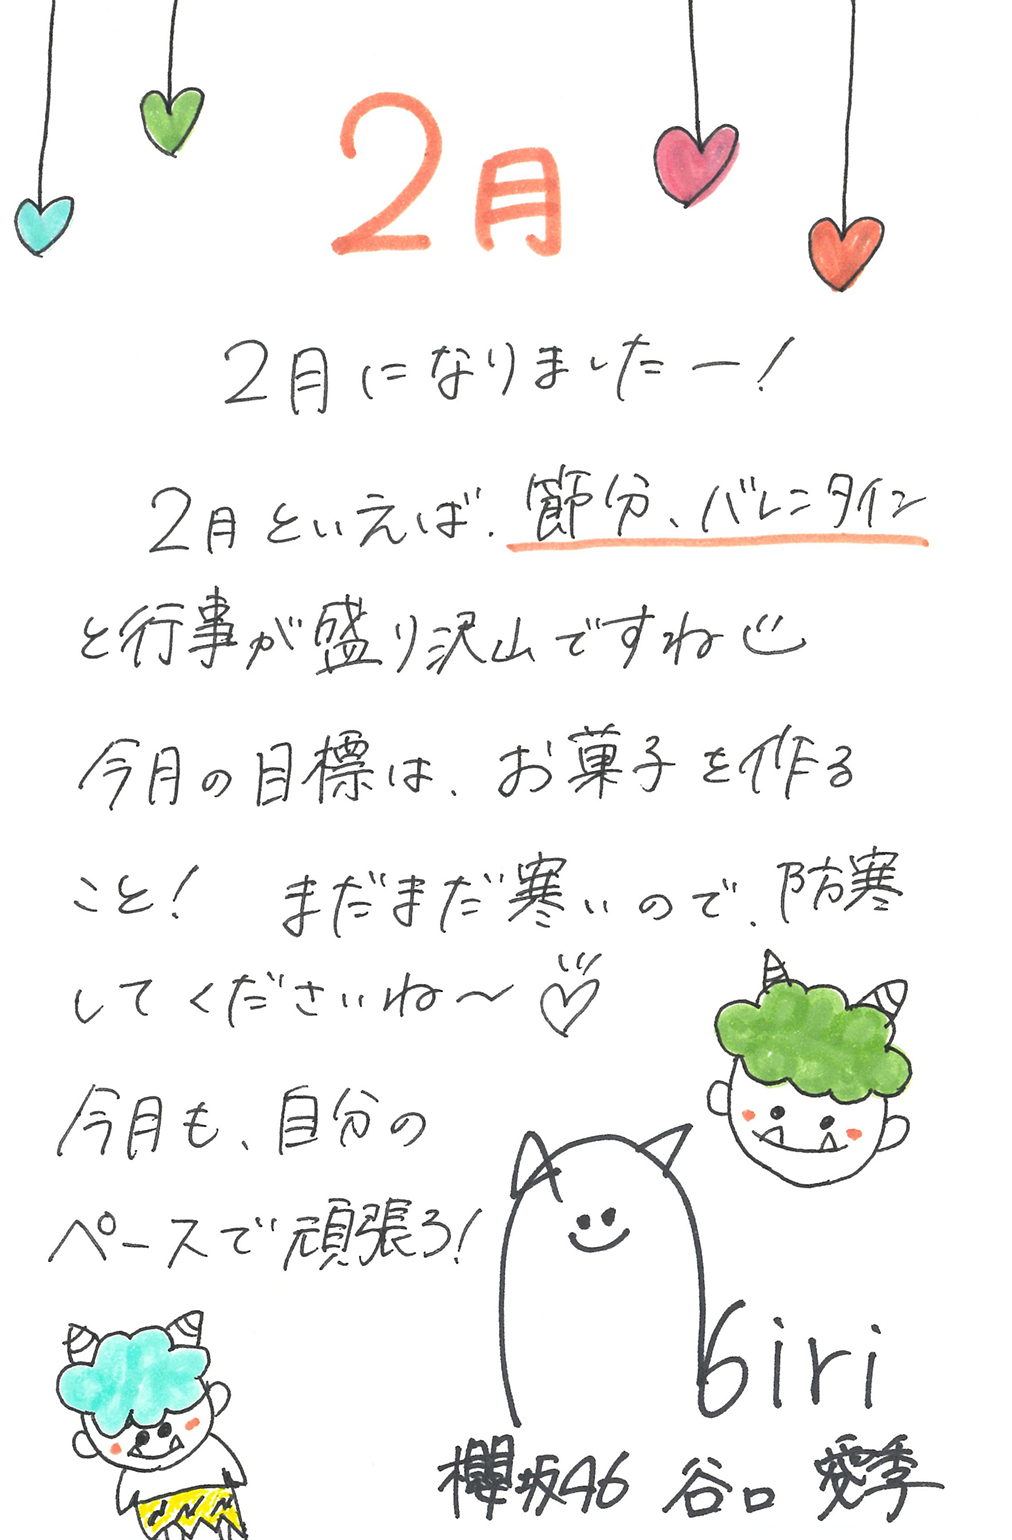 2月
2月になりましたー!
2月といえば、節分、バレンタイン
と行事が盛り沢山ですね
今月の目標は、お菓子を作る
こと! まだまだ寒いので、防寒
してくださいね〜♡
今月も、自分の
ペースで頑張ろ!
airi
櫻坂46 谷口 愛季